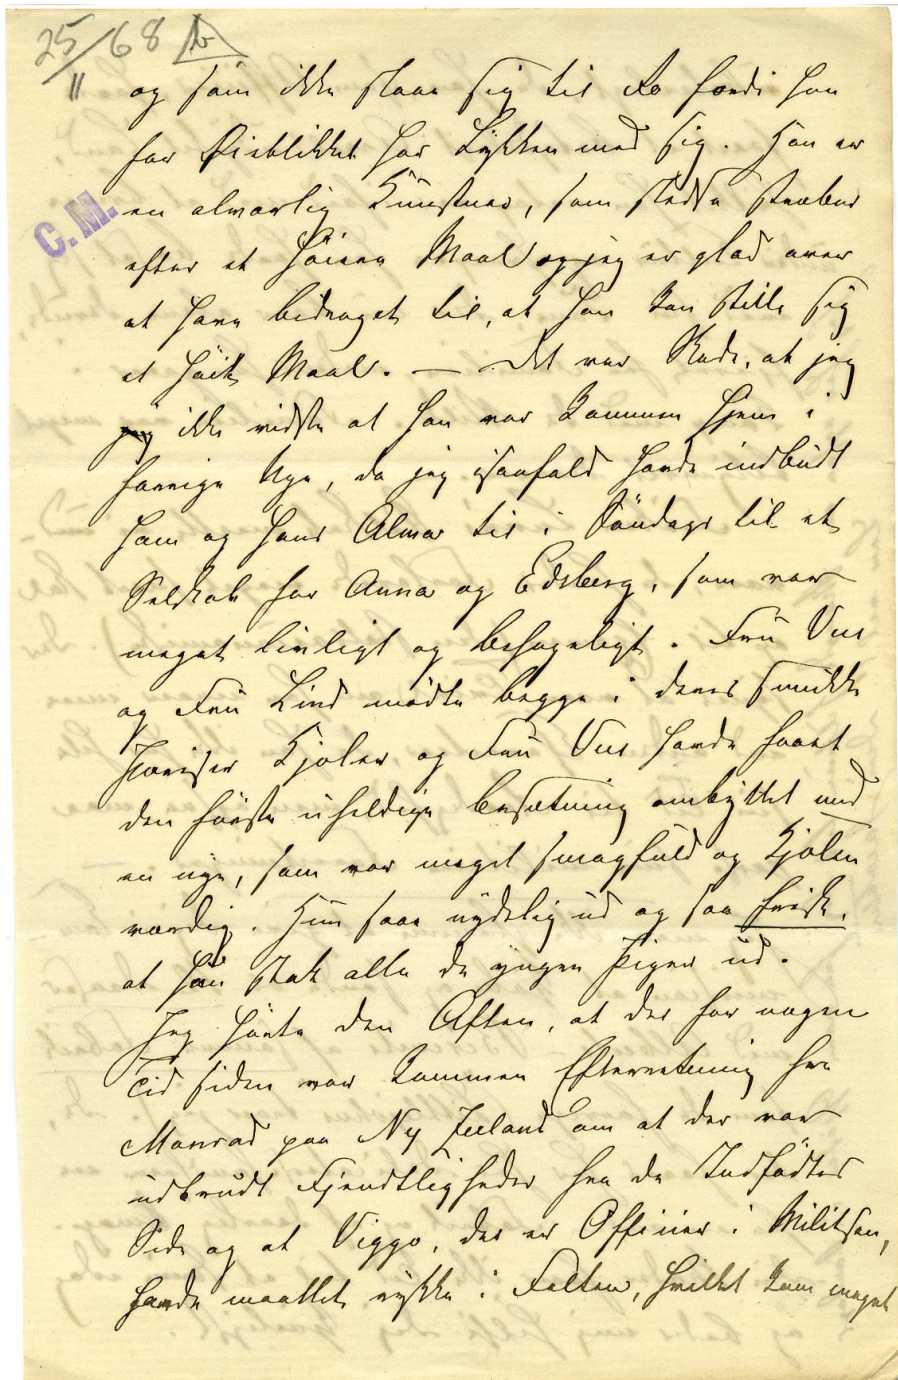 25/11 68 b
C. M.
og som ikke slaaer sig til Ro fordi han
for Øieblikket har Lykken med sig. Han er
en alvorlig Kunstner, som stedse stræber
efter et høiere Maal og jeg er glad over
at have bidraget til, at han kan stille sig
et høit Maal. — Det var Skade, at jeg
jeg ikke vidste at han var kommen hjem i
forrige Uge, da jeg isaafald havde indbudt
ham og hans Alma til i Søndags til et
Selskab for Anna og Edsberg, som var
meget livligt og behageligt. Fru
og Fru Lind mødte begge i deres smukke
Pariser Kjoler og Fru havde faaet
den første uheldige Besætning ombyttet med
en nye, som var meget smagfuld og Kjolen
værdig. Hun saae nydelig ud og saa frisk,
at hun stak alle de unge Piger ud.
Jeg hørte den Aften, at der for nogen
Tid siden var kommen Efterretning fra
Monrad paa Ny Zeeland om at der var
udbrudt Fjendtligheder fra de Indfødtes
Side og at Viggo, der er Officier i Militsen,
havde maattet rykke i Felten, hvilket kom meget